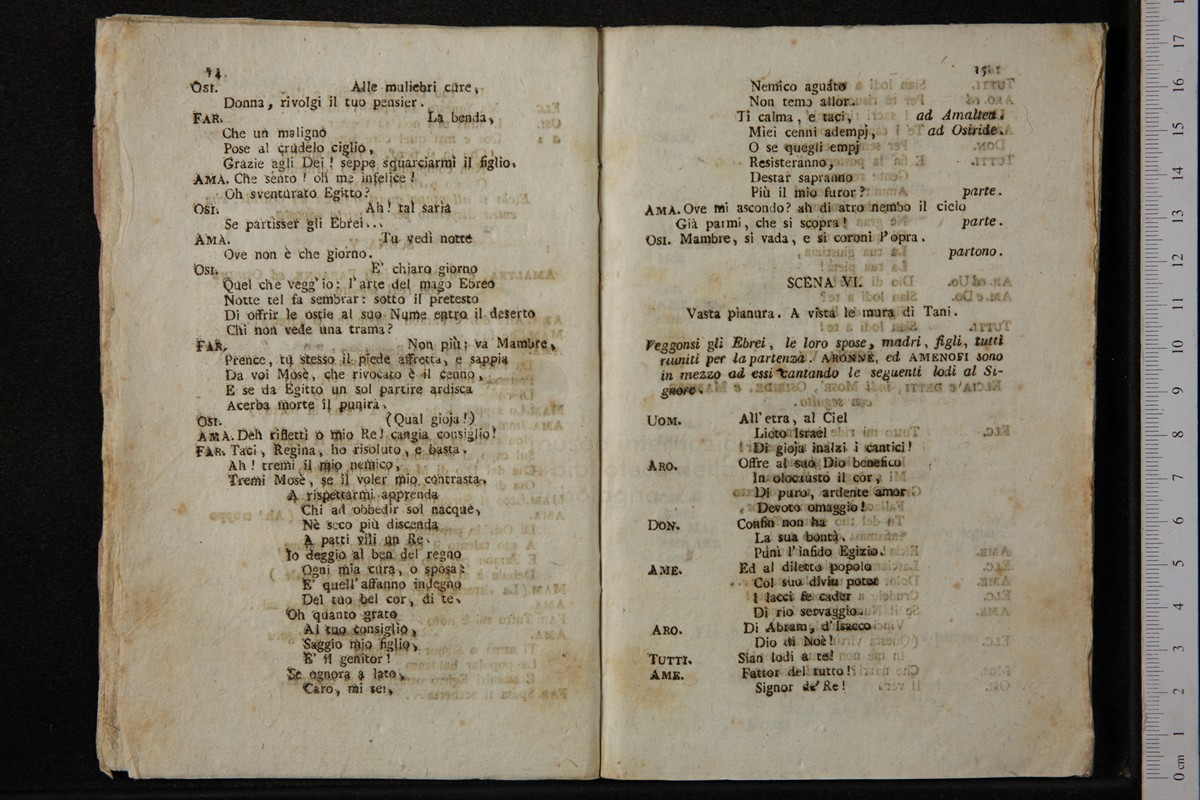 14
OSI. Alle muliebri cure,
Donna, rivolgi il tuo pensier.
FAR. La benda,
Che un maligno
Pose al crudelo ciglio,
Grazie agli Dei! seppe squarciarmi il figlio.
AMA. Che sento! oh me infelice!
Oh sventurato Egitto?
OSI. Ah! tal saria
Se partisser gli Ebrei...
AMA. Tu vedi notte
Ove non è che giorno.
OSI. E' chiaro giorno
Quel che vegg'io: l'arte del mago Ebreo
Notte tel fa sembrar: sotto il pretesto
Di offrir le ostie al suo Nume entro il deserto
Chi non vede una trama?
FAR. Non più; va Mambre,
Prence, tu stesso il piede affretta, e sappia
Da voi Mosè, che rivocato è il cenno,
E se da Egitto un sol partire ardisca
Acerba morte il punirà.
OSI. (Qual gioja!)
AMA. Deh rifletti o mio Re! cangia consiglio!
FAR. Taci, Regina, ho risoluto, e basta.
Ah! tremi il mio nemico,
Tremi Mosè, se il voler mio contrasta.
A rispettarmi apprenda
Chi ad obbedir sol nacque,
Nè seco più discenda
A patti vili un Re.
Io deggio al ben del regno
Ogni mia cura, o sposa:
E' quell'affanno indegno
Del tuo bel cor, di te.
Oh quanto grato
Al tuo consiglio,
Saggio mio figlio,
E' il genitor!
Se ognora a lato,
Caro, mi sei,
15
Nemico aguato
Non temo allor.
Ti calma, e taci, ad Amaltea.
Miei cenni adempj, ad Osiride.
O se quegli empj
Resisteranno,
Destar sapranno
Più il mio furor? parte.
AMA. Ove mi ascondo? ah di atro nembo il cielo
Già parmi, che si scopra! parte.
OSI. Mambre, si vada, e si coroni l'opra.
partono.
SCENA VI.
Vasta pianura. A vista le mura di Tani.
Veggonsi gli Ebrei, le loro spose, madri, figli, tutti
riuniti per la partenza. ARONNE, ed AMENOFI sono
in mezzo ad essi cantando le seguenti lodi al Si-
gnore.
UOM. All'etra, al Ciel
Lieto Israel
Di gioja inalzi i cantici!
ARO. Offre al suo Dio benefico
In olocausto il cor,
Di puro, ardente amor
Devoto omaggio!
DON. Confin non ha
La sua bontà.
Punì l'infido Egizio.
AME. Ed al diletto popolo
Col suo divin poter
I lacci fe cader
Di rio servaggio.
ARO. Di Abram, d'Isacco
Dio di Noè!
TUTTI. Sian lodi a te!
AME. Fattor del tutto!
Signor de' Re!